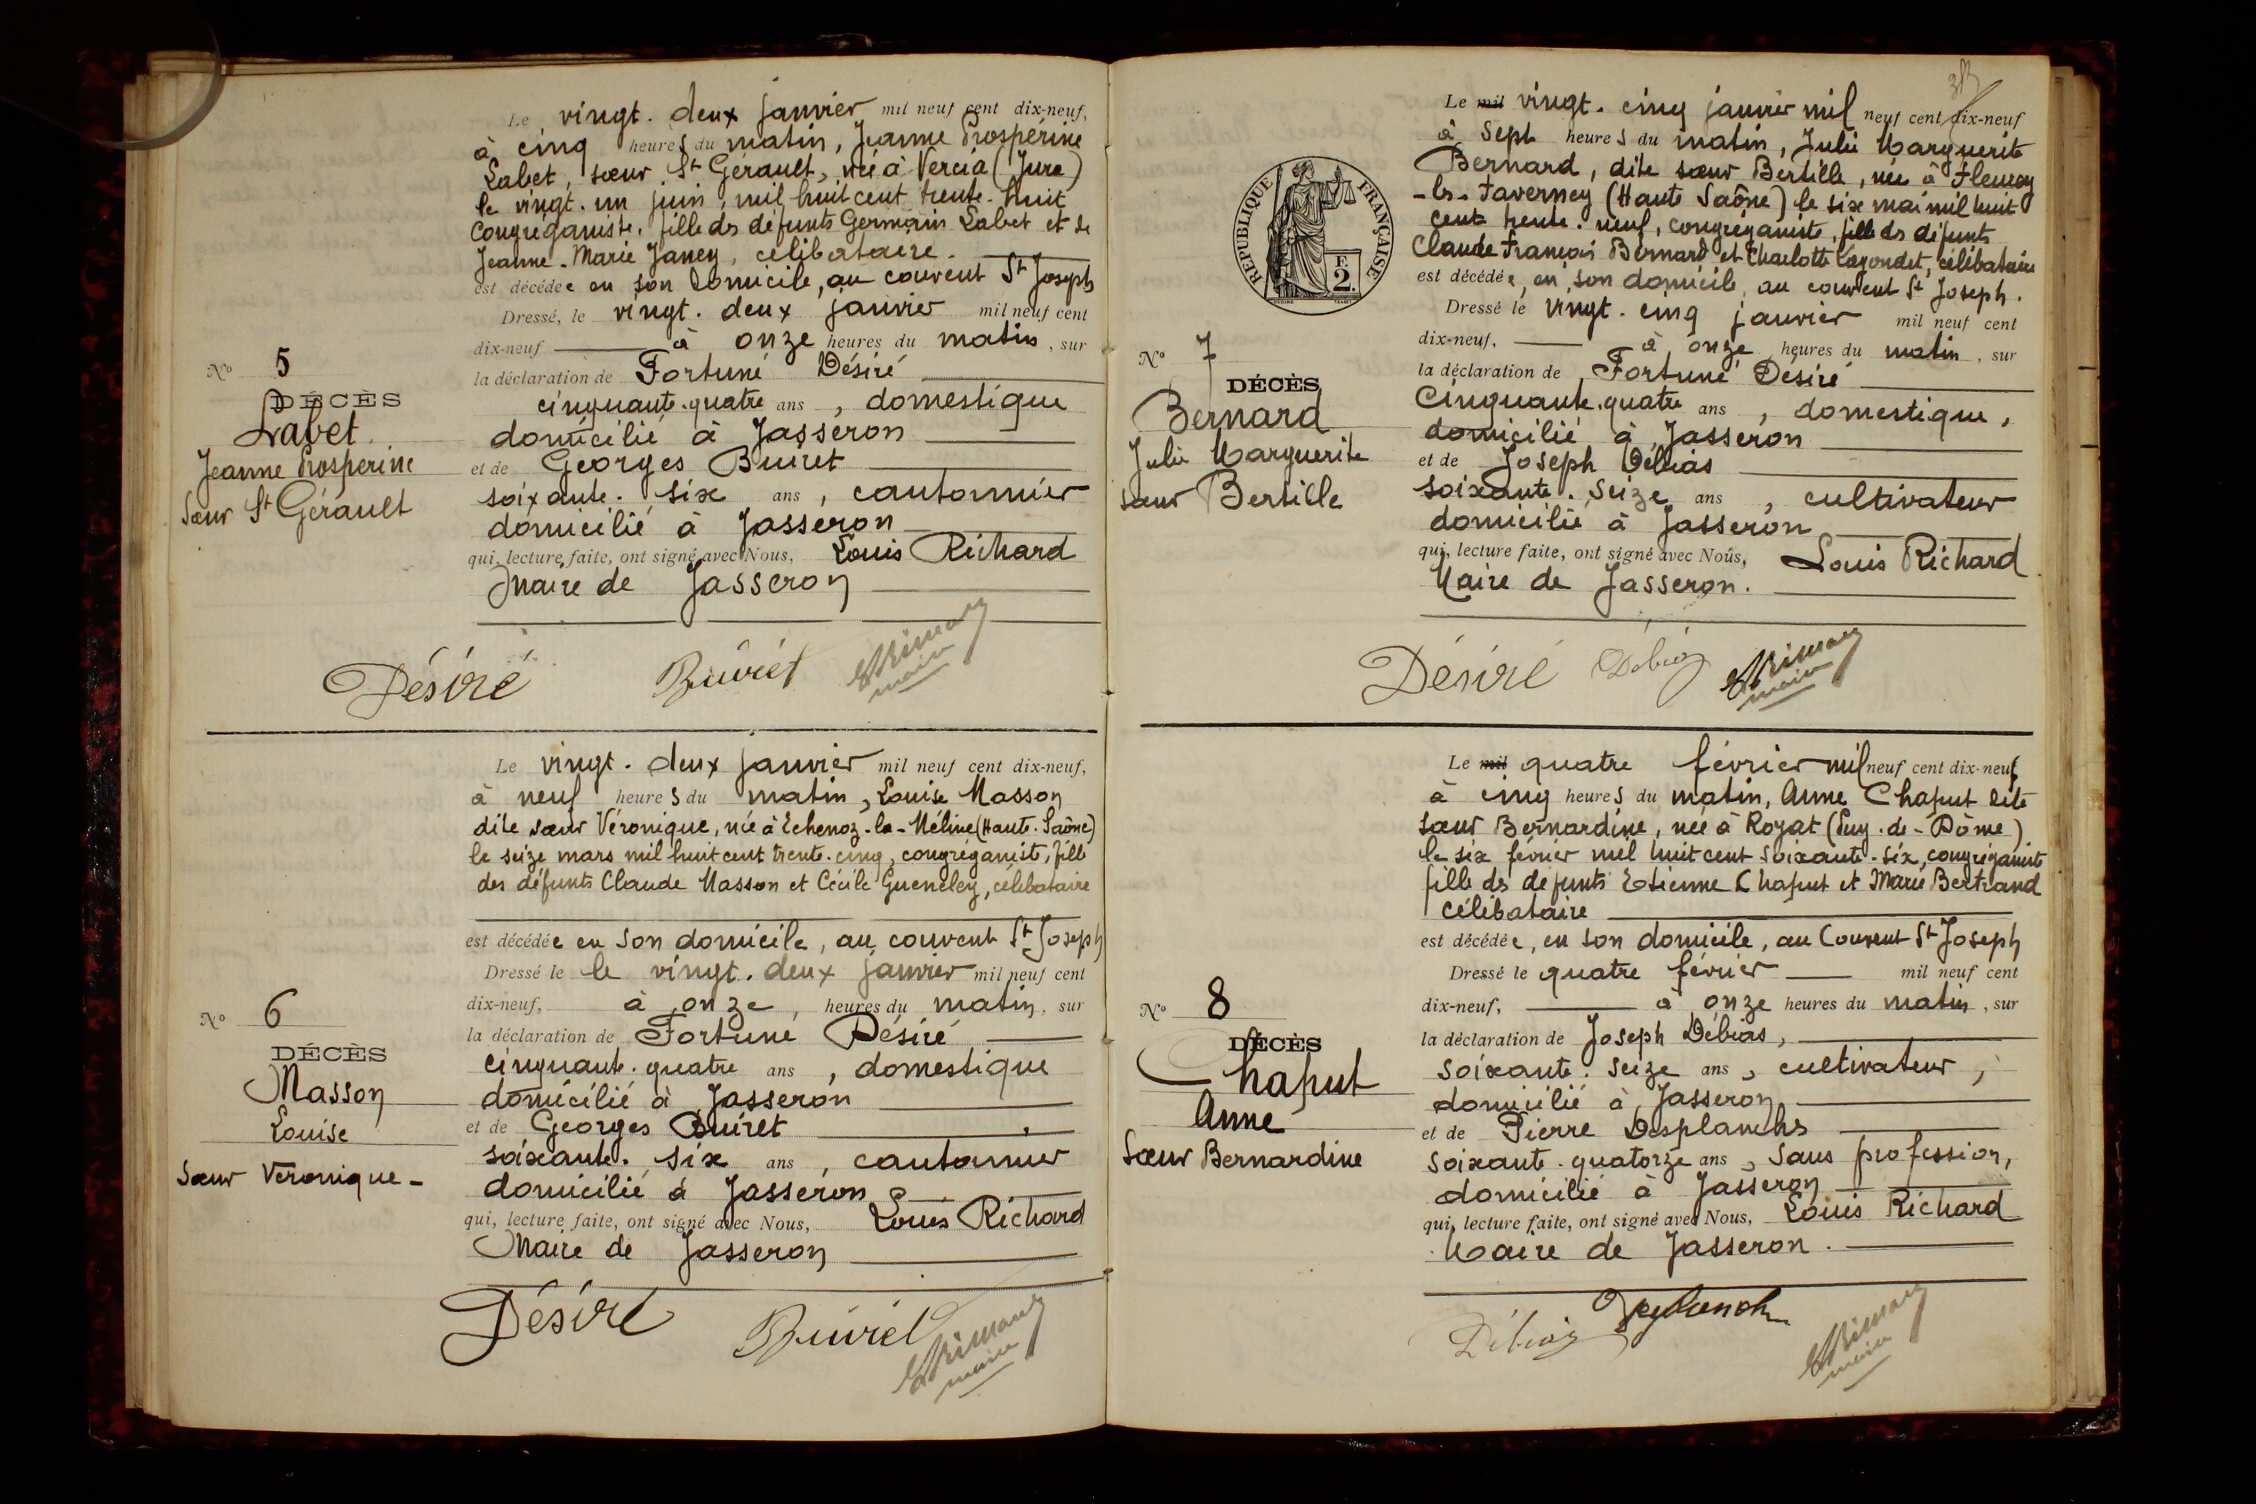 Le vingt. deux janvier mil neuf cent dix-neuf,
à cinq heures du matin, Jeanne Prospérine
Labet, sœur St Gérault, née à Vercia (Jura)
le vingt. un juin, mil huit cent trente. huit
congréganiste, fille ds défunts Germain Labet et de
Jeanne-Marie Janey, célibataire.
est décédée en son domicile, au couvent St Joseph
Dressé, le vingt. deux janvier mil neuf cent
dix-neuf à onze heures du matin, sur
la déclaration de Fortuné Désiré
cinquante.quatre ans, domestique
domicilié à Jasseron
et de Georges Buiret
soixante. six ans, cantonnier
domicilié à Jasseron
qui, lecture faite, ont signé avec Nous, Louis Richard
Maire de Jasseron
No 5
DÉCÈS
Labet
Jeanne Prosperine
Sœur St Gérault
Désiré Buiret
maire
Le vingt. deux janvier mil neuf cent dix-neuf,
à neuf heures du matin, Louise Masson
dite sœur Véronique, née à Echenoz-la-Méline (Haute. Saône)
le seize mars mil huit cent trente. cinq, congréganiste, fille
des défunts Claude Masson et Cécile Gueneley, célibataire
est décédée en son domicile, au couvent St Joseph
Dressé le le vingt. deux janvier mil neuf cent
dix-neuf, à onze heures du matin, sur
la déclaration de Fortuné Désiré
cinquante. quatre ans, domestique
domicilié à Jasseron
et de Georges Buiret
soixante. six ans, cantonnier
domicilié à Jasseron
qui, lecture faite, ont signé avec Nous, Louis Richard
Maire de Jasseron
No 6
DÉCÈS
Masson
Louise
Sœur Véronique -
Désiré Buiret
maire
Le mil vingt. cinq janvier mil neuf cent dix-neuf
à sept heures du matin, Julie Marguerite
Bernard, dite sœur Bertille, née à Fleurey
-ls- Faverney (Haute Saône) le six mai mil huit
cent trente. neuf, congréganiste, fille ds défunts
Claude François Bernard et Charlotte Lagondet, célibataire
est décédée, en son domicile, au couvent St Joseph.
Dressé le vingt. cinq janvier mil neuf cent
dix-neuf, à onze heures du matin, sur
la déclaration de Fortuné Désiré
Cinquante.quatre ans, domestique,
domicilié à Jasseron
et de Joseph Débias
soixante. seize ans, cultivateur
domicilié à Jasseron
qui, lecture faite, ont signé avec Nous, Louis Richard
Maire de Jasseron.
RÉPUBLIQUE FRANÇAISE
F.
2.
No 7
DÉCÈS
Bernard
Julie Marguerite
sœur Bertille
Désiré Débias
maire
Le mil quatre février mil neuf cent dix-neuf
à cinq heures du matin, Anne Chaput dite
sœur Bernardine, née à Royat (Puy-de-Dôme)
le six février mil huit cent soixante-six, congréganiste
fille ds défunts Etienne Chaput et Marie Bertrand
célibataire
est décédée, en son domicile, au Couvent St Joseph
Dressé le quatre février mil neuf cent
dix-neuf, à onze heures du matin, sur
la déclaration de Joseph Débias,
soixante. seize ans, cultivateur,
domicilié à Jasseron
et de Pierre Desplanchs
soixante. quatorze ans, sans profession,
domicilié à Jasseron
qui, lecture faite, ont signé avec Nous, Louis Richard
Maire de Jasseron.
No 8
DÉCÈS
Chaput
Anne
Sœur Bernardine
Débias
maire